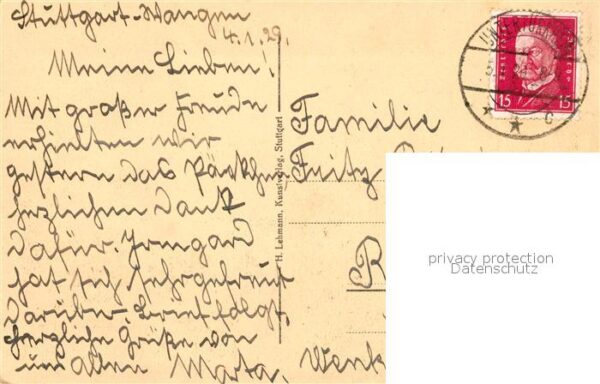 Stuttgart-Wangen
4.1.29.
Meine Lieben!
Mit großer Freude
erhielten wir
gestern das Päckchen
herzlichen Dank
dafür. Irmgard
hat sich sehr gefreut
darüber. Brief folgt.
Herzliche Grüße von
uns Allen Marta.
H. Lehmann, Kunstverlag, Stuttgart
Familie
Fritz
15 15
privacy protection
Datenschutz